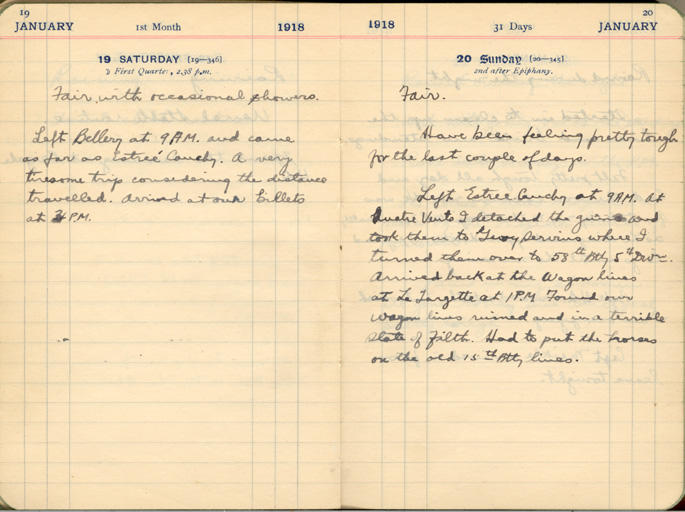 19
JANUARY 1st Month 1918
19 SATURDAY [19—346]
☽ First Quarter, 2.38 p.m.
Fair, with occasional showers.
Left Bellery at 9 AM. and came
as far as Estreé Cauchy. A very
tiresome trip considering the distance
travelled. Arrived at our billets
at 4 PM.
20
1918 31 Days JANUARY
20 Sunday [20—345]
2nd after Epiphany.
Fair.
Have been feeling pretty tough
for the last couple of days.
Left Estree Cauchy at 9 AM. At
Quatre Vents I detached the guns and
took them to Servins where I
turned them over to 58th Bty 5th Divn.
Arrived back at the Wagon lines
at La Targette at 1 PM. Found our
wagon lines ruined and in a terrible
state of filth. Had to put the horses
on the old 15th Bty lines.